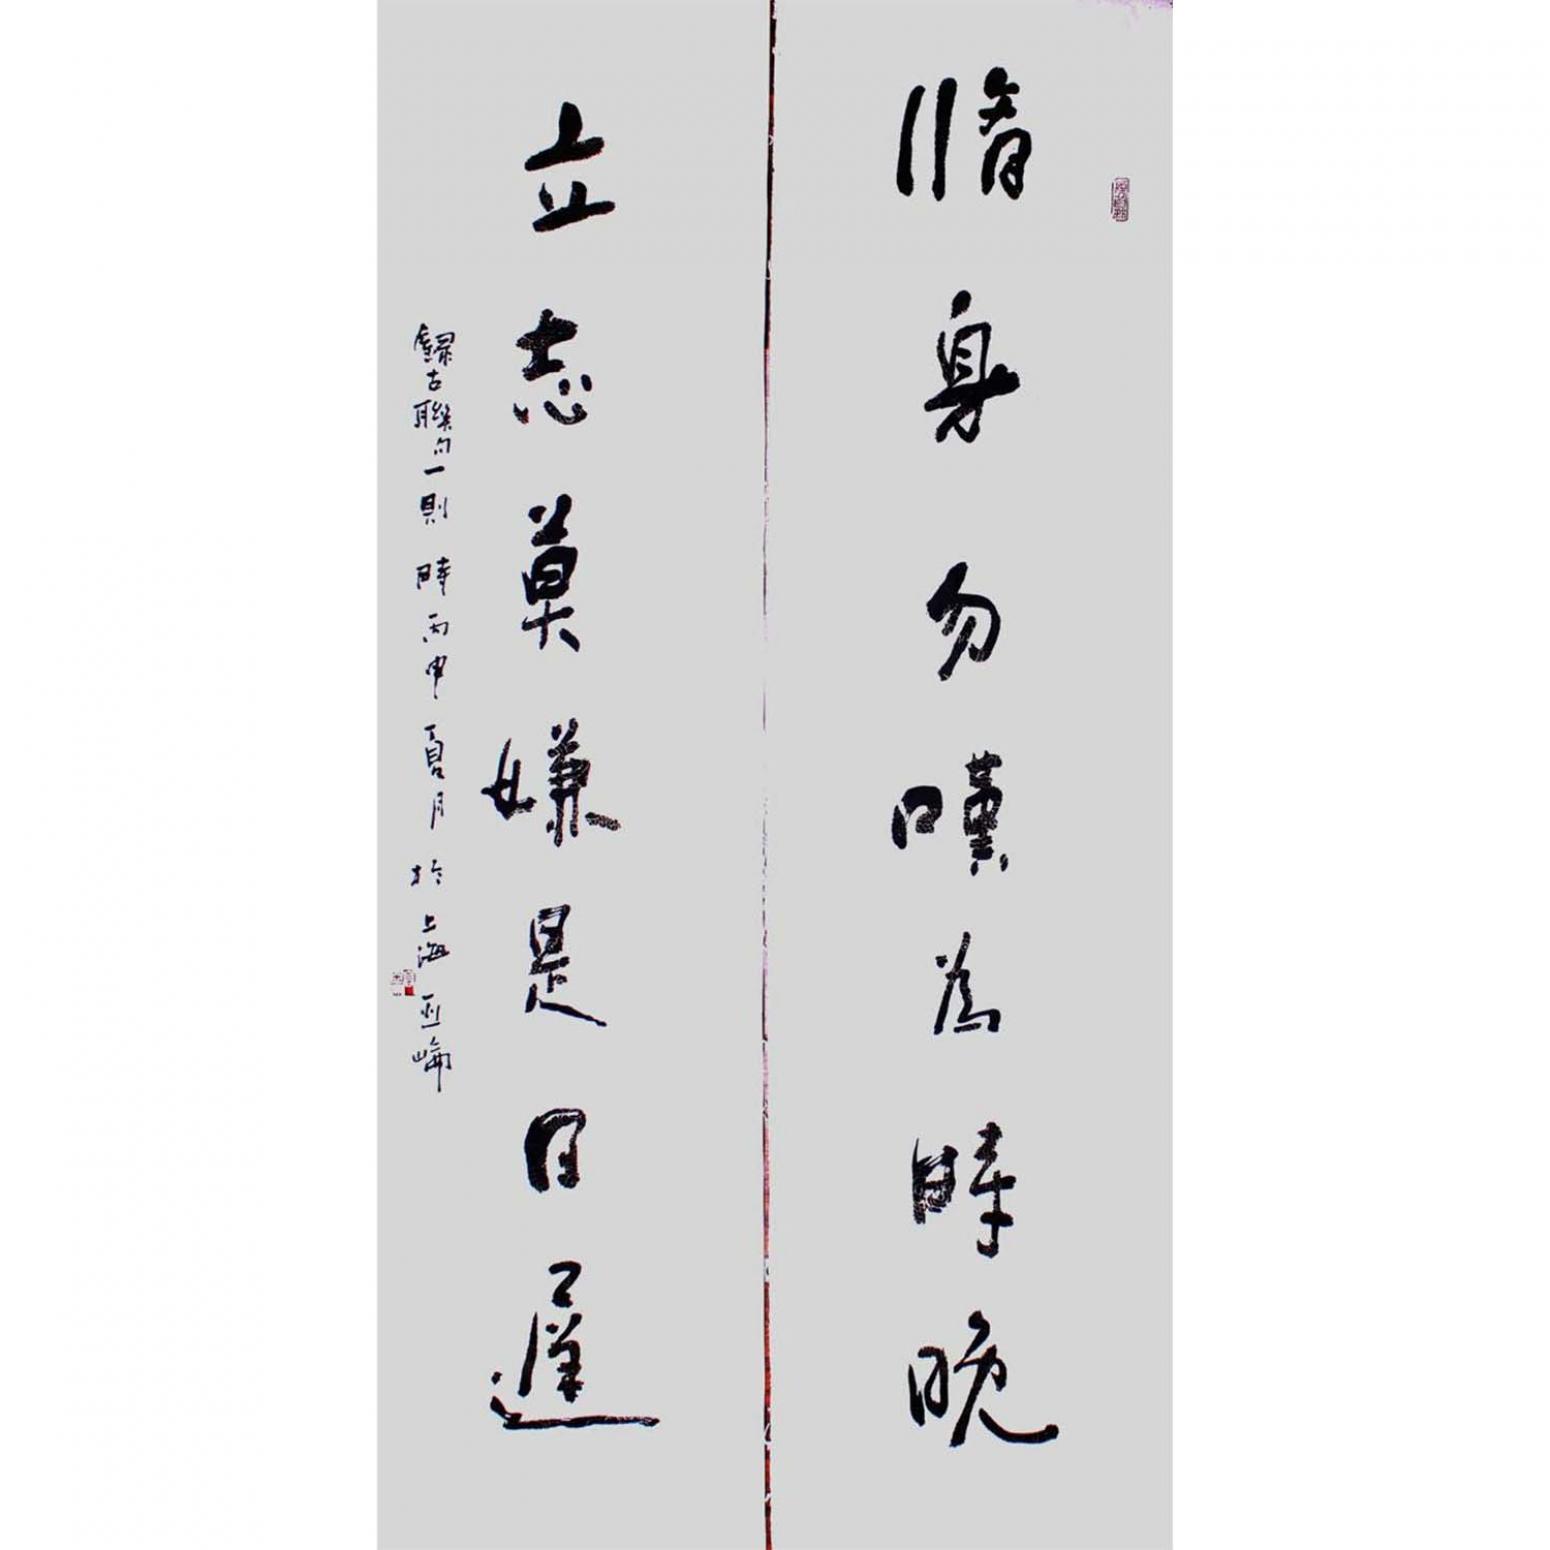 脩身勿嘆為時晚
立志莫嫌是日遲
錄古聯句一則 時丙申夏月於上海 亞崘